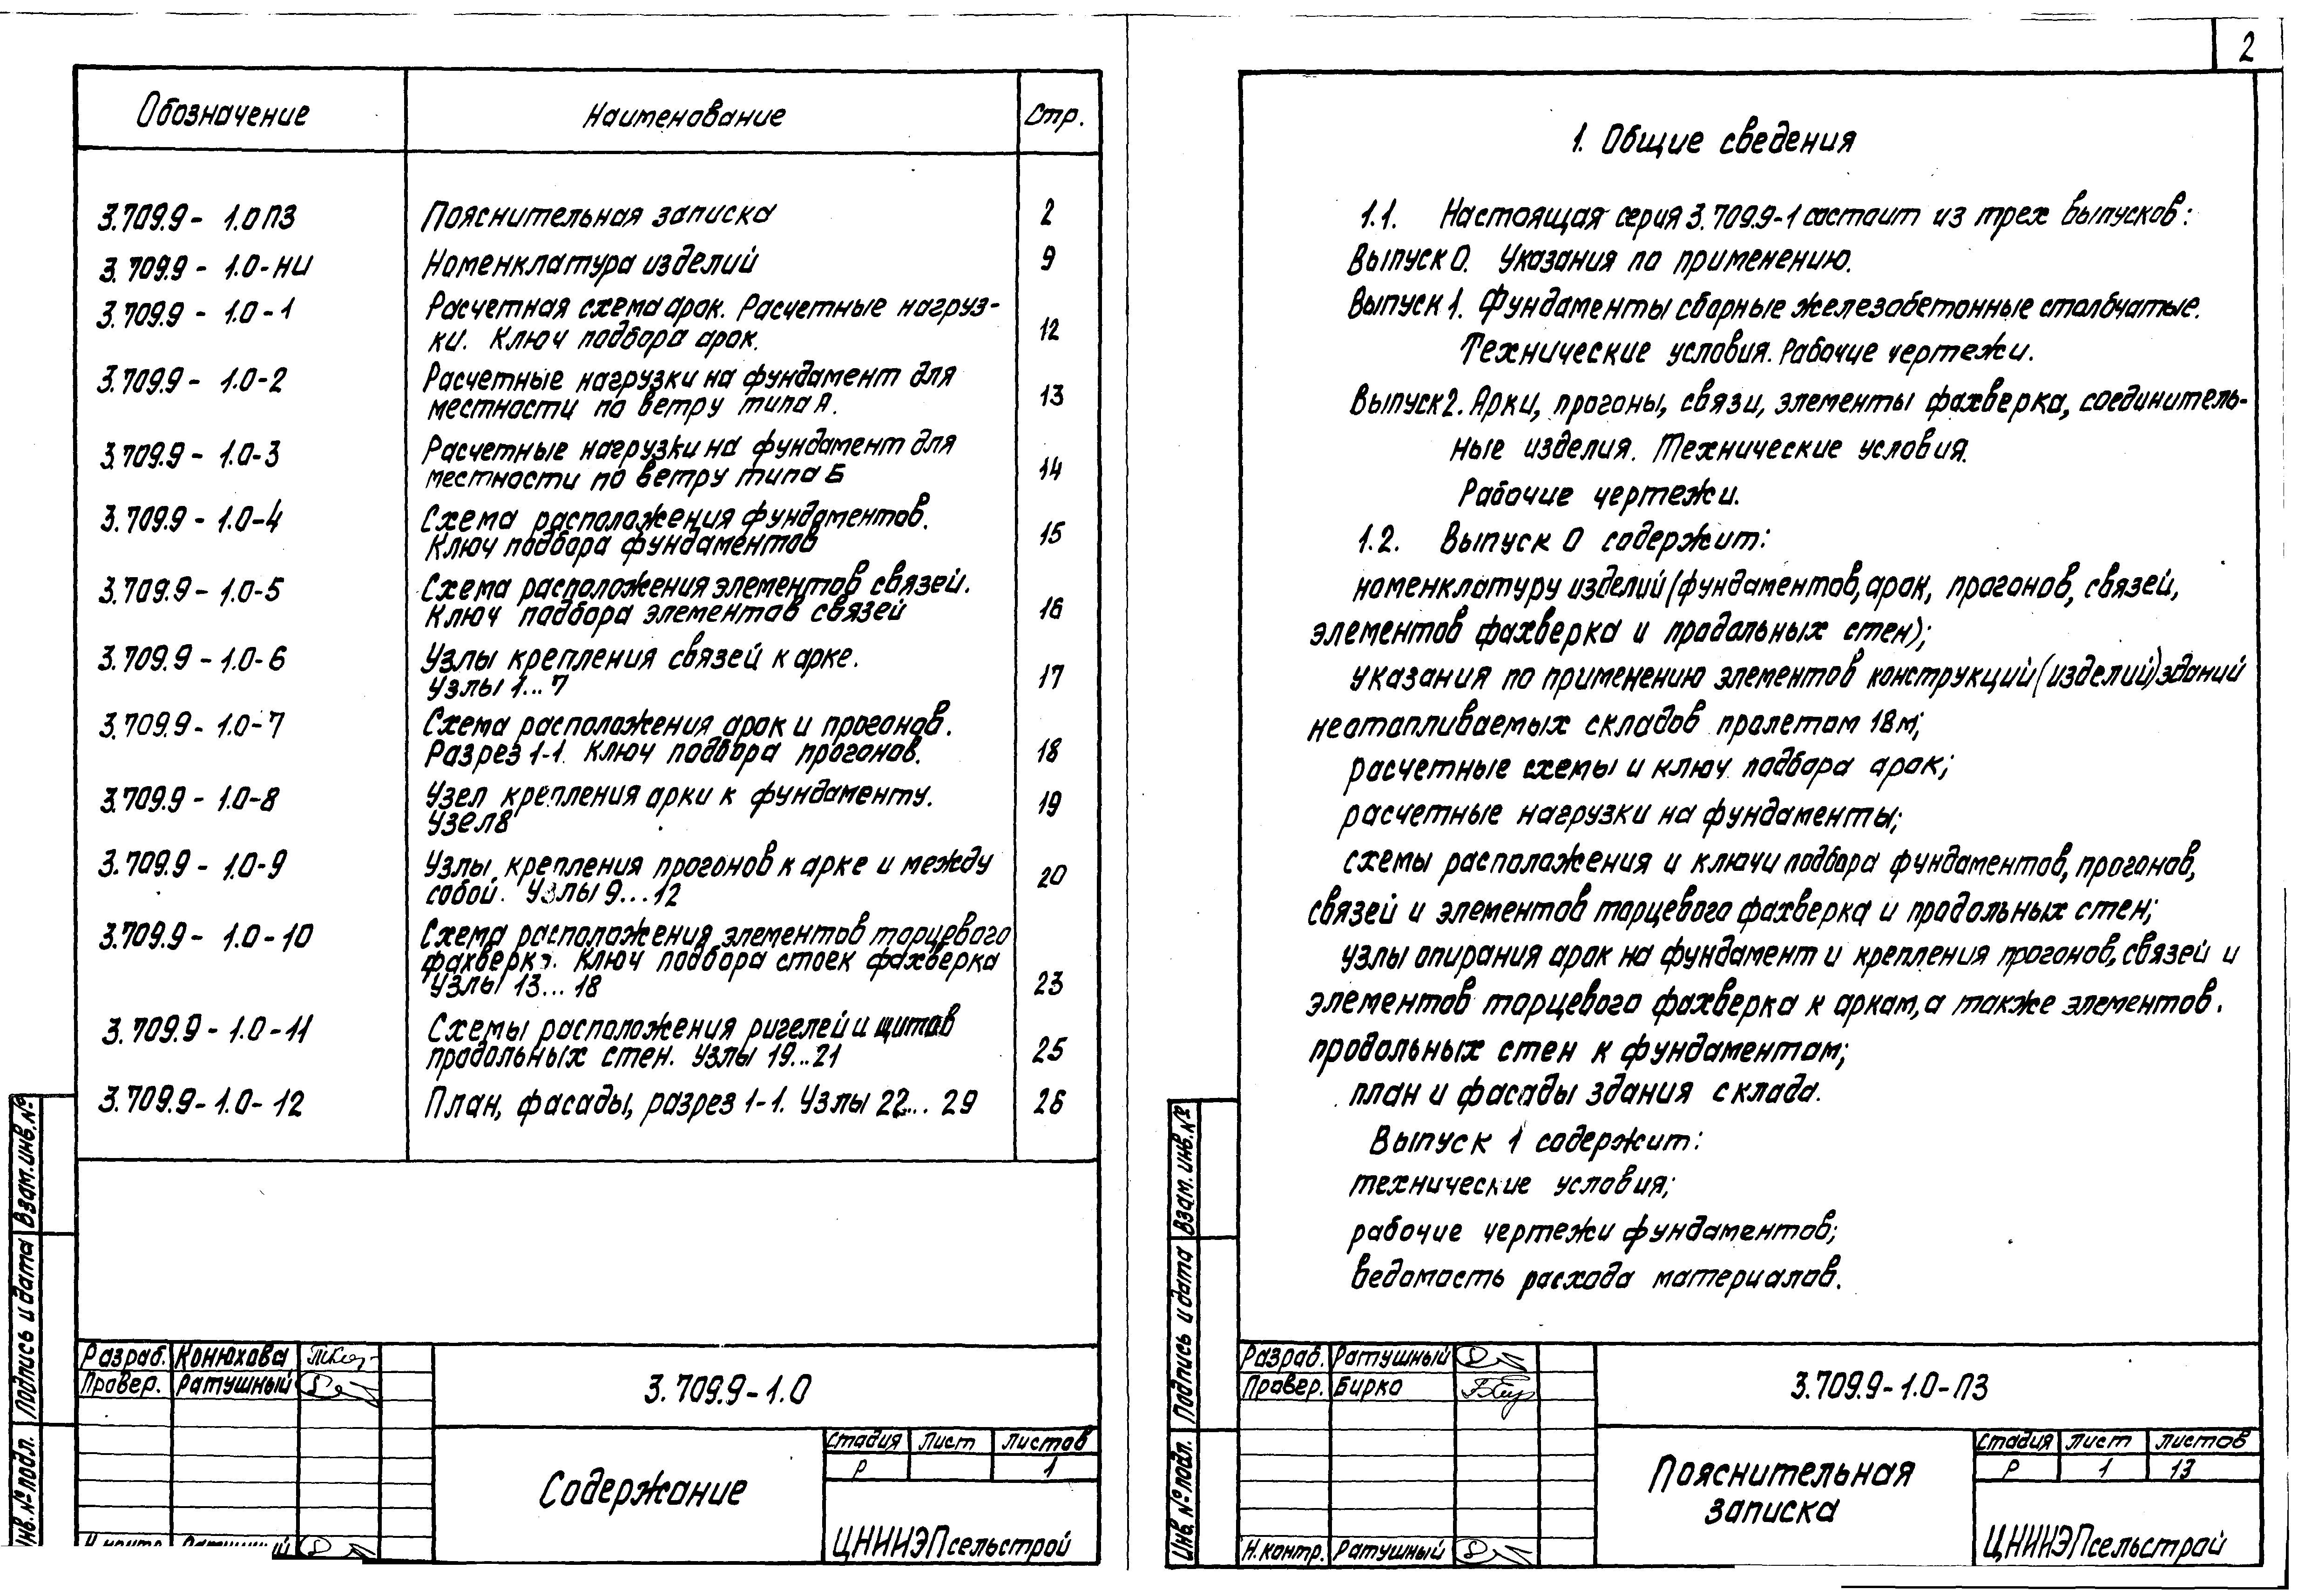 Обозначение Наименование Стр.
3.709.9 - 1.0ПЗ Пояснительная записка 2
3.709.9 - 1.0-НИ Номенклатура изделий 9
3.709.9 - 1.0-1 Расчетная схема арок. Расчетные нагруз-
ки. Ключ подбора арок. 12
3.709.9 - 1.0-2 Расчетные нагрузки на фундамент для
местности по ветру типа А. 13
3.709.9 - 1.0-3 Расчетные нагрузки на фундамент для
местности по ветру типа Б 14
3.709.9 - 1.0-4 Схема расположения фундаментов.
Ключ подбора фундаментов 15
3.709.9 - 1.0-5 Схема расположения элементов связей.
Ключ подбора элементов связей 16
3.709.9 - 1.0-6 Узлы крепления связей к арке.
Узлы 1...7 17
3.709.9 - 1.0-7 Схема расположения арок и прогонов.
Разрез 1-1. Ключ подбора прогонов. 18
3.709.9 - 1.0-8 Узел крепления арки к фундаменту.
Узел 8 19
3.709.9 - 1.0-9 Узлы крепления прогонов к арке и между
собой. Узлы 9...12 20
3.709.9 - 1.0-10 Схема расположения элементов торцевого
фахверка. Ключ подбора стоек фахверка
Узлы 13...18 23
3.709.9 - 1.0-11 Схемы расположения ригелей и щитов
продольных стен. Узлы 19...21 25
3.709.9 - 1.0-12 План, фасады, разрез 1-1. Узлы 22...29 26
Взам. инв. №
Подпись и дата
Инв. № подл.
Разраб. Конюхова
Провер. Ратушный
Н.контр. Ратушный
3.709.9-1.0
Содержание
Стадия Лист Листов
Р 1
ЦНИИЭПсельстрой
2
1. Общие сведения
1.1. Настоящая серия 3.709.9-1 состоит из трех выпусков:
Выпуск 0. Указания по применению.
Выпуск 1. Фундаменты сборные железобетонные столбчатые.
Технические условия. Рабочие чертежи.
Выпуск 2. Арки, прогоны, связи, элементы фахверка, соединитель-
ные изделия. Технические условия.
Рабочие чертежи.
1.2. Выпуск 0 содержит:
номенклатуру изделий (фундаментов, арок, прогонов, связей,
элементов фахверка и продольных стен);
указания по применению элементов конструкций (изделий) зданий
неотапливаемых складов пролетом 18м;
расчетные схемы и ключ подбора арок;
расчетные нагрузки на фундаменты;
схемы расположения и ключи подбора фундаментов, прогонов,
связей и элементов торцевого фахверка и продольных стен;
узлы опирания арок на фундамент и крепления прогонов, связей и
элементов торцевого фахверка к аркам, а также элементов.
продольных стен к фундаментам;
план и фасады здания склада.
Выпуск 1 содержит:
технические условия;
рабочие чертежи фундаментов;
ведомость расхода материалов.
Взам. инв. №
Подпись и дата
Инв. № подл.
Разраб. Ратушный
Провер. Бирко
Н.контр. Ратушный
3.709.9-1.0-ПЗ
Пояснительная
записка
Стадия Лист Листов
Р 1 13
ЦНИИЭПсельстрой